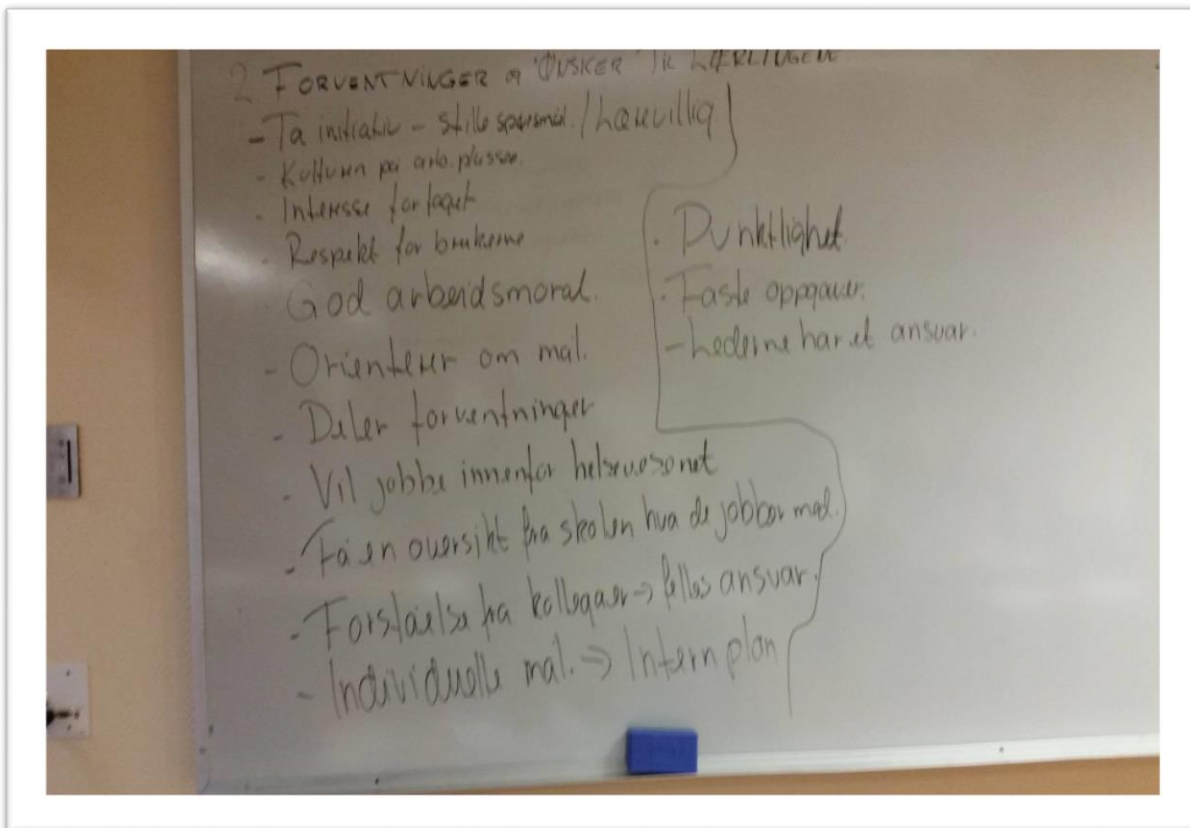 2. FORVENTNINGER OG ØNSKER TIL LÆRLINGEN
- Ta initiativ - stille spørsmål. / Lærevillig
- Kulturen på arb. plassen.
- Interesse for faget
- Respekt for brukerne
- God arbeidsmoral.
- Orienterer om mål.
- Deler forventninger
- Vil jobbe innenfor helsevesenet
- Få en oversikt fra skolen hva de jobber med.
- Forståelse fra kollegaer → felles ansvar.
- Individuelle mål. ⇒ Intern plan
- Punktlighet.
- Faste oppgaver.
- Lederne har et ansvar.